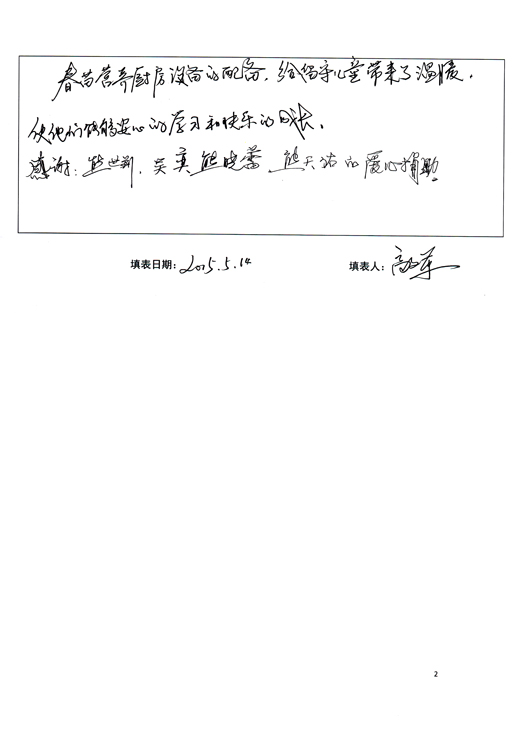 春苗营养厨房设备的配备，给留守儿童带来了温暖，
使他们能够安心的学习和快乐的成长。
感谢：熊世翔，吴真 熊晓 熊天 的爱心捐助
填表日期：2015.5.14 填表人：高
2